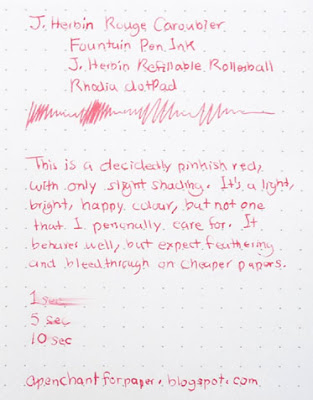 J. Herbin Rouge Caroubier
Fountain Pen Ink
J. Herbin Refillable Rollerball
Rhodia dotPad
This is a decidedly pinkish red,
with only slight shading. It's a light,
bright, happy colour, but not one
that I personally care for. It
behaves well, but expect feathering
and bleedthrough on cheaper papers.
1 sec
5 sec
10 sec
apenchantforpaper.blogspot.com